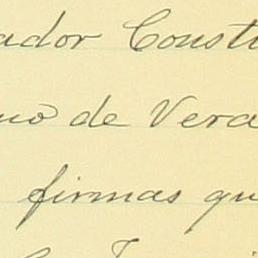 ador Consti
no de Vera
firmas qu